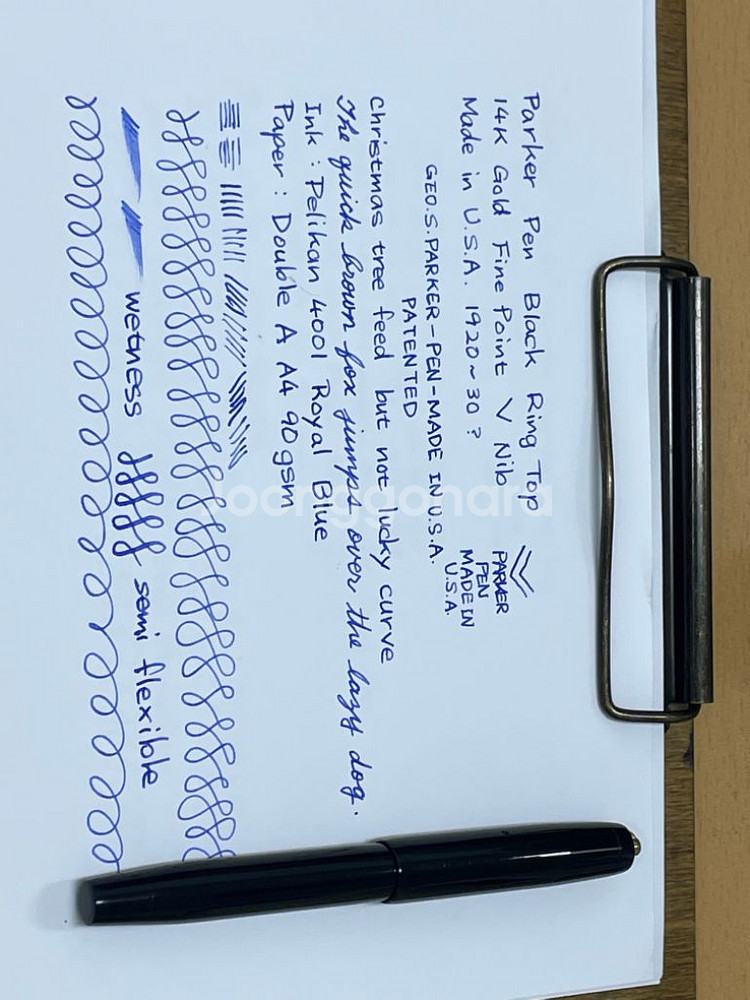 Parker Pen Black Ring Top
14K Gold Fine Point V Nib
Made in U.S.A. 1920~30 ?
PARKER
PEN
MADE IN
U.S.A.
GEO.S.PARKER-PEN-MADE IN U.S.A.
PATENTED
Christmas tree feed but not lucky curve
The quick brown fox jumps over the lazy dog.
Ink : Pelikan 4001 Royal Blue
Paper : Double A A4 90gsm
wetness semi flexible
joonggonara